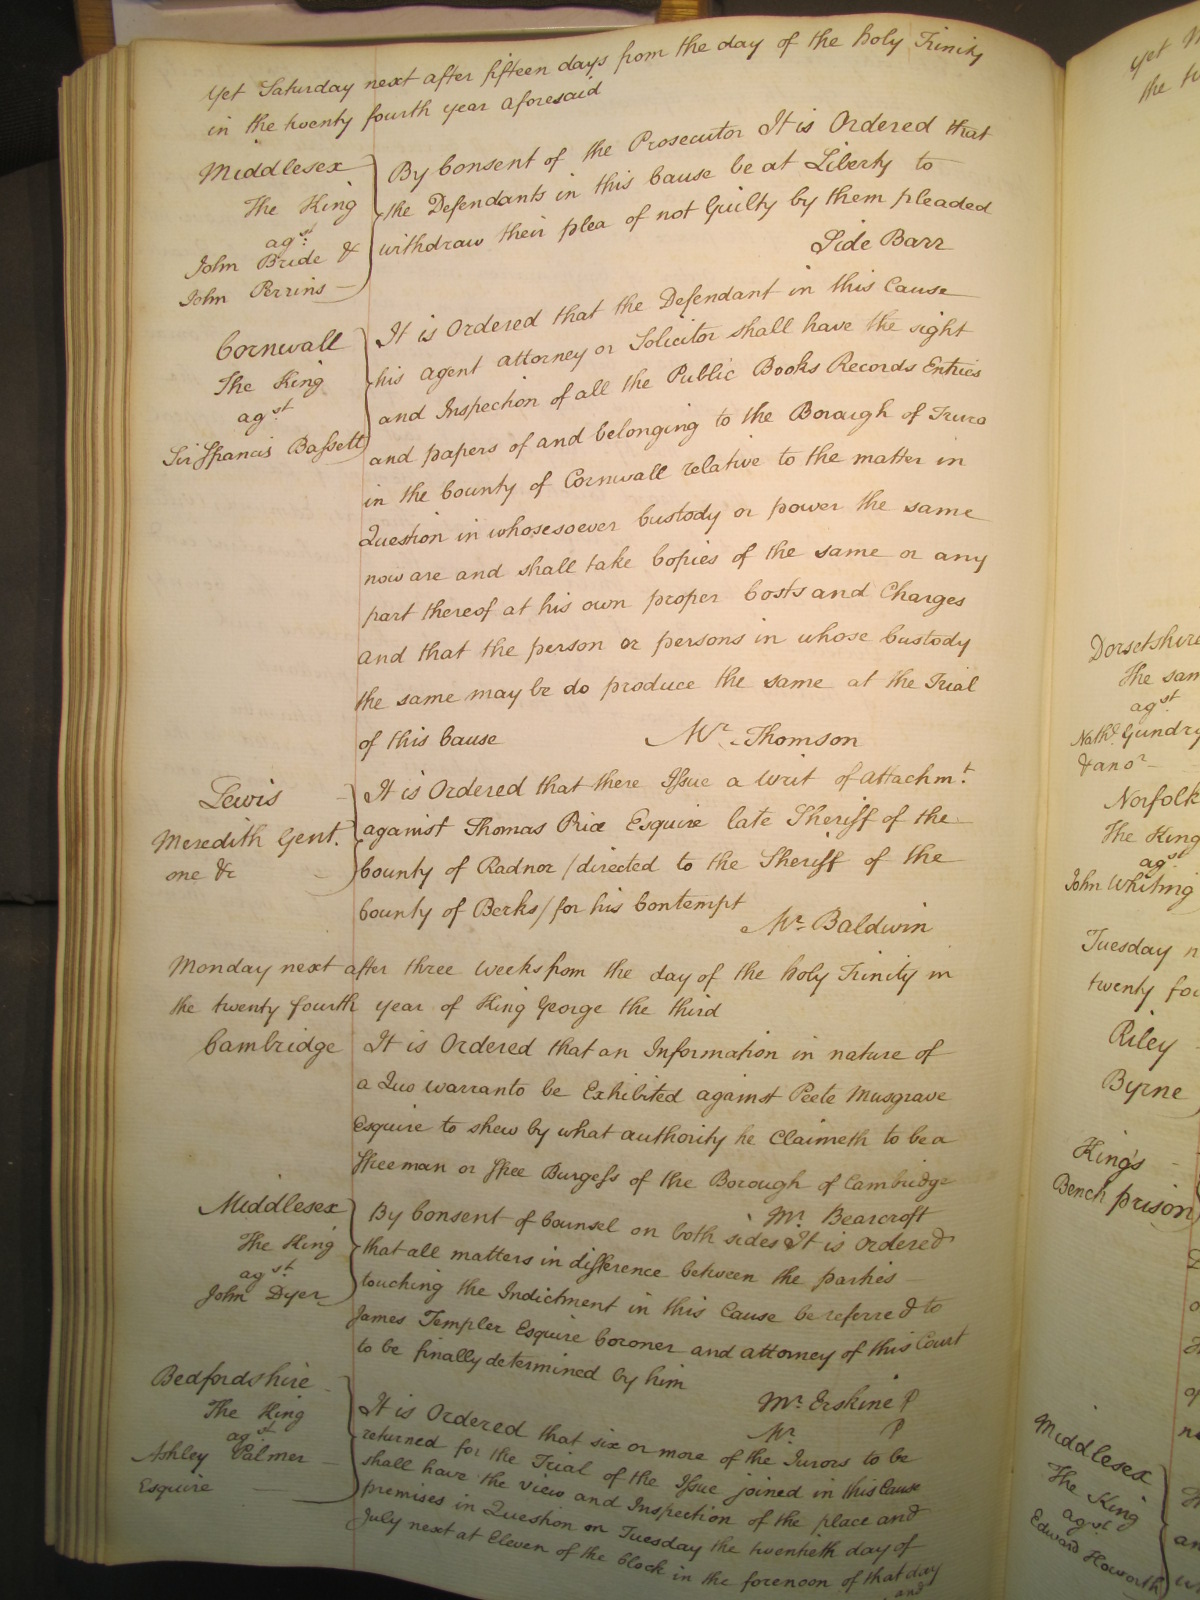 Yet Saturday next after fifteen days from the day of the holy Trinity
in the twenty fourth year aforesaid
Middlesex
The King
agst
John Bride &
John Perrins
By Consent of the Prosecutor It is Ordered that
the Defendants in this Cause be at Liberty to
withdraw their plea of not Guilty by them pleaded
Side Barr
Cornwall
The King
agst
Sir ffrancis Bassett
It is Ordered that the Defendant in this Cause
his agent attorney or Solicitor shall have the sight
and Inspection of all the Public Books Records Entries
and papers of and belonging to the Borough of Truro
in the County of Cornwall relative to the matter in
Question in whosesoever Custody or power the same
now are and shall take Copies of the same or any
part thereof at his own proper Costs and Charges
and that the person or persons in whose Custody
the same may be do produce the same at the Trial
of this Cause
Mr. Thomson
Lewis
Meredith Gent.
one &c
It is Ordered that there Issue a Writ of attachmt.
against Thomas Price Esquire late Sheriff of the
County of Radnor /directed to the Sheriff of the
County of Berks/ for his Contempt
Mr. Baldwin
Monday next after three weeks from the day of the holy Trinity in
the twenty fourth year of King George the third
Cambridge
It is Ordered that an Information in nature of
a Quo warranto be Exhibited against Peete Musgrave
Esquire to shew by what authority he Claimeth to be a
ffreeman or ffree Burgess of the Borough of Cambridge
Mr. Bearcroft
Middlesex
The King
agst.
John Dyer
By Consent of Counsel on both sides It is Ordered
that all matters in difference between the parties
touching the Indictment in this Cause be referred to
James Templer Esquire Coroner and attorney of this Court
to be finally determined by him
Mr. Erskine P
Mr. P
Bedfordshire
The King
agst
Ashley Palmer
Esquire
It is Ordered that six or more of the Jurors to be
returned for the Trial of the Issue joined in this Cause
shall have the view and Inspection of the place and
premises in Question on Tuesday the twentieth day of
July next at Eleven of the Clock in the forenoon of that day
and
yet M
the tw
Dorsetshire
The sam
agst.
Nathl. Gundry
& anor
Norfolk
The King
agst.
John Whiting
Tuesday n
twenty fou
Riley
Byrne
King's
Bench prison
Middlesex
The King
agst
Edward Howorth